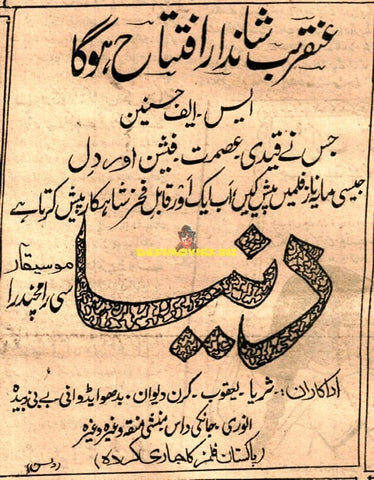 عنقریب شاندار افتتاح ہوگا
ایس۔ ایف حسنین
جس نے قیدی۔ عصمت۔ فیشن اور دل
جیسی مایہ ناز فلمیں پیش کیں اب ایک اور قابل فخر شاہکار پیش کرتا ہے
دنیا
موسیقار
سی رامچندرا
اداکاران:۔ ثریا۔ یعقوب۔ کرن دیوان۔ بدھو ایڈوانی۔ بے بی زبیدہ
انوری۔ جانکی داس۔ وغیرہ وغیرہ
(پاکستان فلمز کا جاری کردہ)